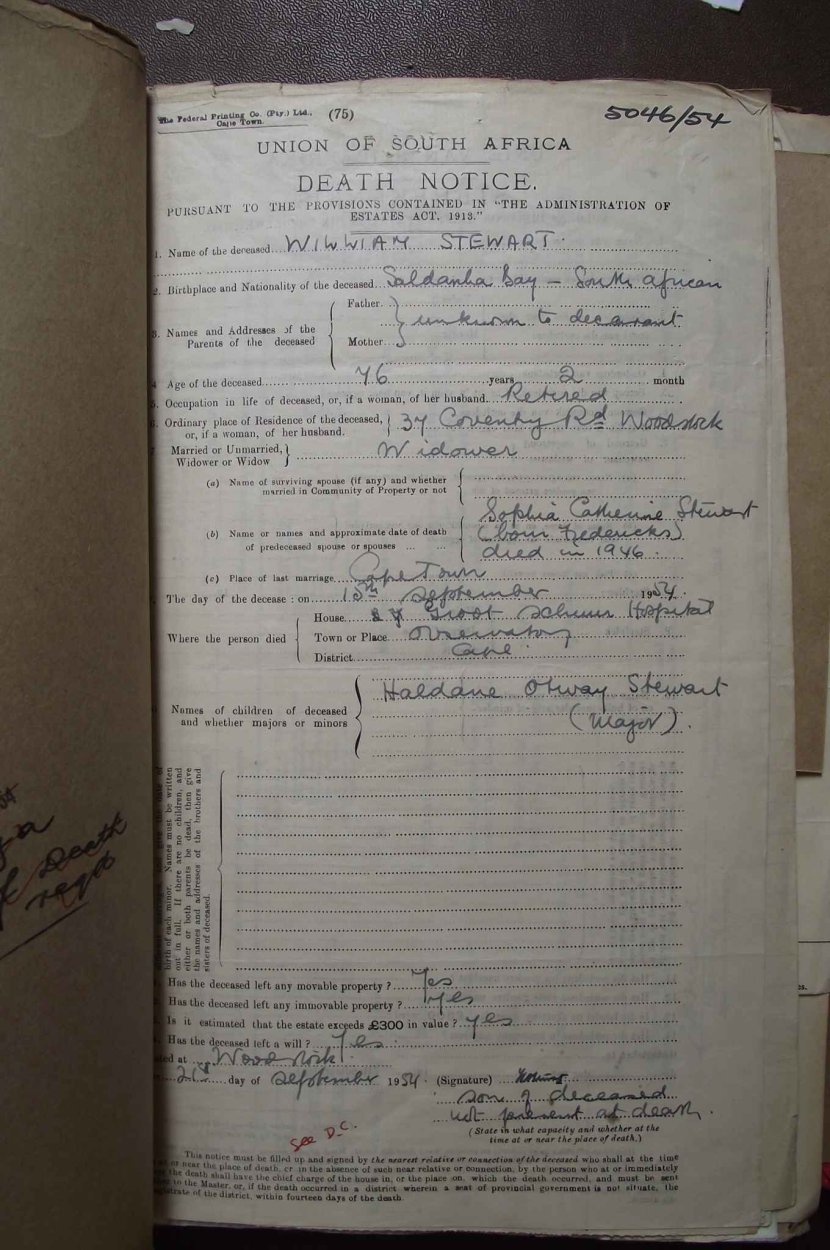 The Federal Printing Co. (Pty.) Ltd., (75) 5046/54
Cape Town.
UNION OF SOUTH AFRICA
DEATH NOTICE.
PURSUANT TO THE PROVISIONS CONTAINED IN "THE ADMINISTRATION OF
ESTATES ACT, 1913."
1. Name of the deceased WILLIAM STEWART.
2. Birthplace and Nationality of the deceased Saldanha Bay – South African
3. Names and Addresses of the Parents of the deceased
Father
unknown to decarant
Mother
4 Age of the deceased 76 years 2 month
5. Occupation in life of deceased, or, if a woman, of her husband Retired
6. Ordinary place of Residence of the deceased, 37 Coventry Rd Woodstock
or, if a woman, of her husband.
7 Married or Unmarried, Widower
Widower or Widow
(a) Name of surviving spouse (if any) and whether
married in Community of Property or not
Sophia Catherine Stewart
(b) Name or names and approximate date of death (born Fredericks)
of predeceased spouse or spouses ... ... died in 1946.
(c) Place of last marriage Cape Town
The day of the decease : on 15th September 1954.
House Groot Schuur Hospital
Where the person died Town or Place Observatory
District Cape.
Haldane Otway Stewart
Names of children of deceased
and whether majors or minors (Major).
birth of each minor. Names must be written
out in full. If there are no children, and
either or both parents be dead, then give
the names and addresses of the brothers and
sisters of deceased.
Has the deceased left any movable property ? Yes
Has the deceased left any immovable property ? Yes
Is it estimated that the estate exceeds £300 in value ? Yes
Has the deceased left a will ? Yes
at Woodstock
21st day of September 1954. (Signature)
son of deceased
not present at death.
(State in what capacity and whether at the
time at or near the place of death.)
See D.C.
This notice must be filled up and signed by the nearest relative or connection of the deceased who shall at the time
or near the place of death, or in the absence of such near relative or connection, by the person who at or immediately
the death shall have the chief charge of the house in, or the place on, which the death occurred, and must be sent
to the Master, or, if the death occurred in a district wherein a seat of provincial government is not situate, the
of the district, within fourteen days of the death.
Death